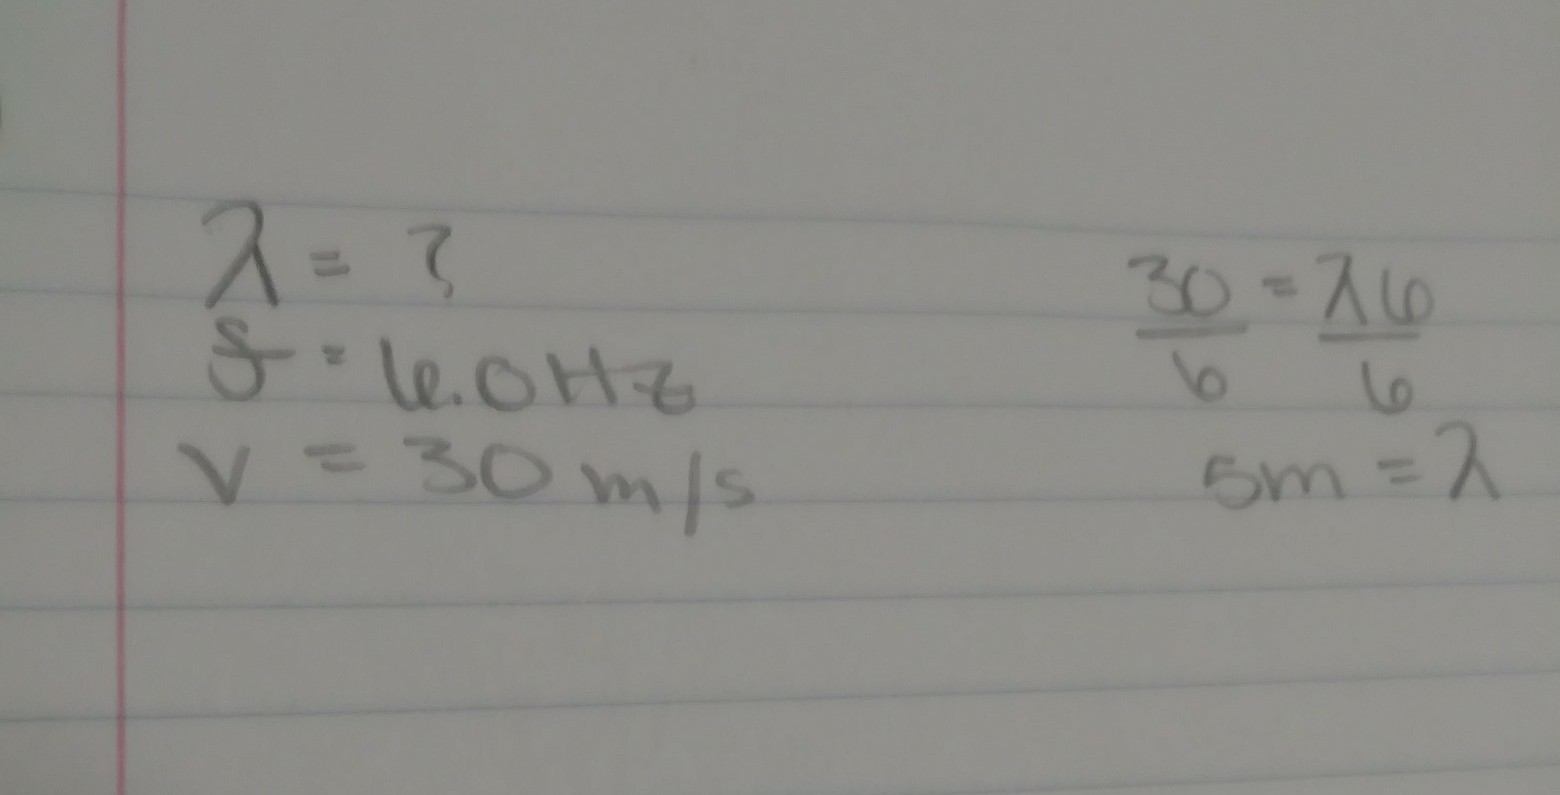 λ = ?
f = 6.0 Hz
v = 30 m/s
30 = λ6
6 6
5m = λ